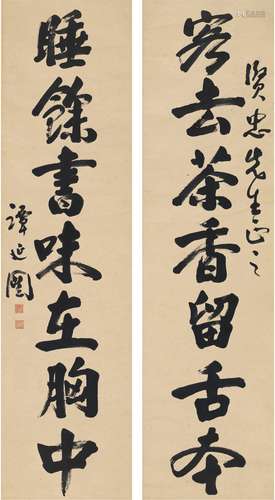 賢忠先生正之
客去茶香留舌本
睡餘書味在胸中
譚延闓